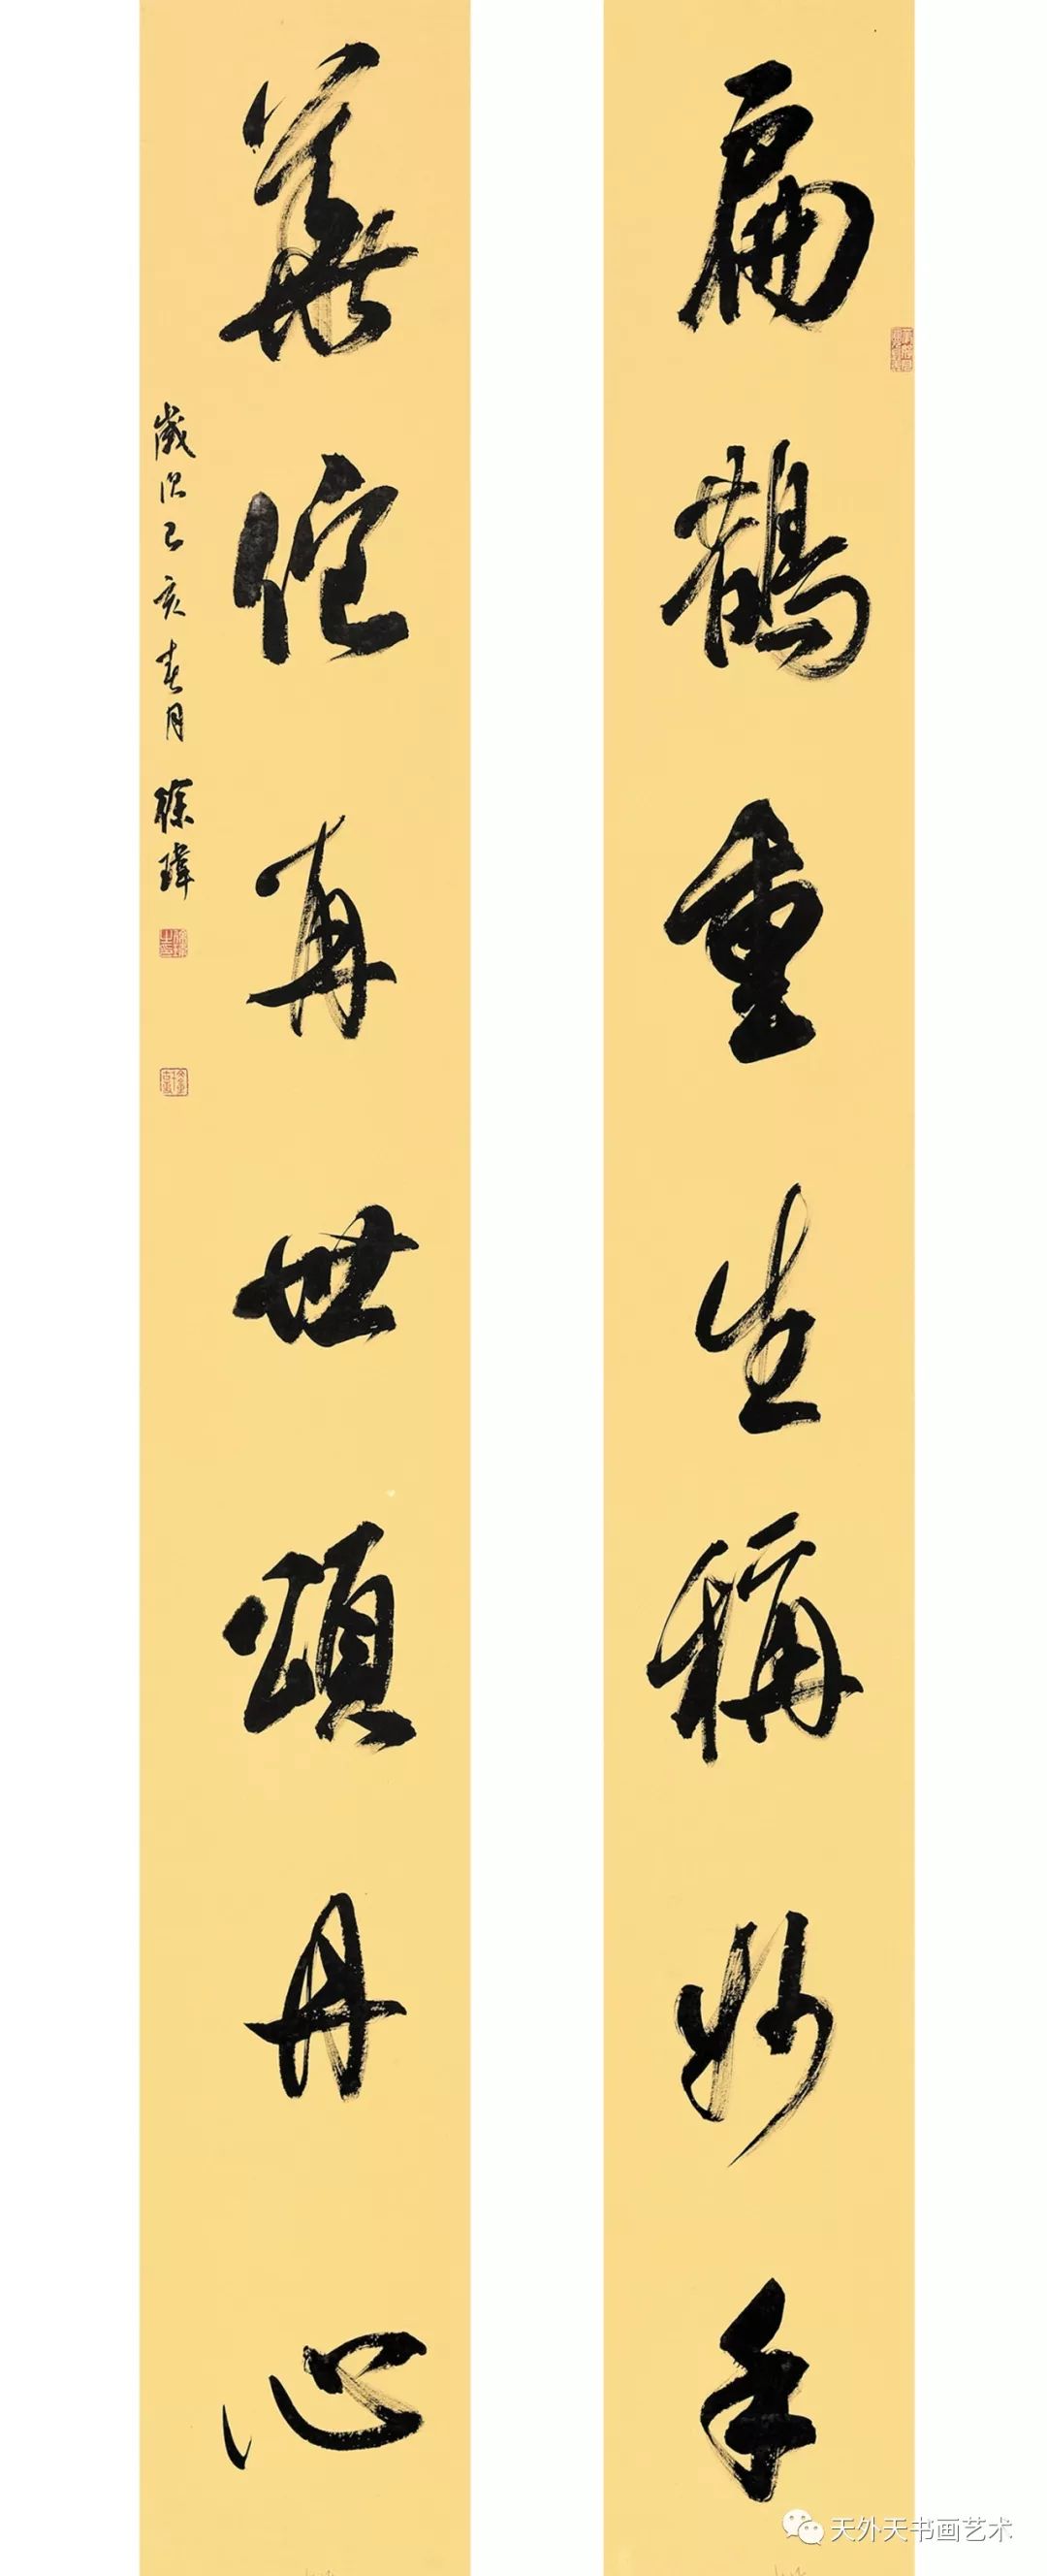 扁鵲重生稱妙手
華佗再世頌丹心
歲次己亥春月 徐瑋
天外天书画艺术